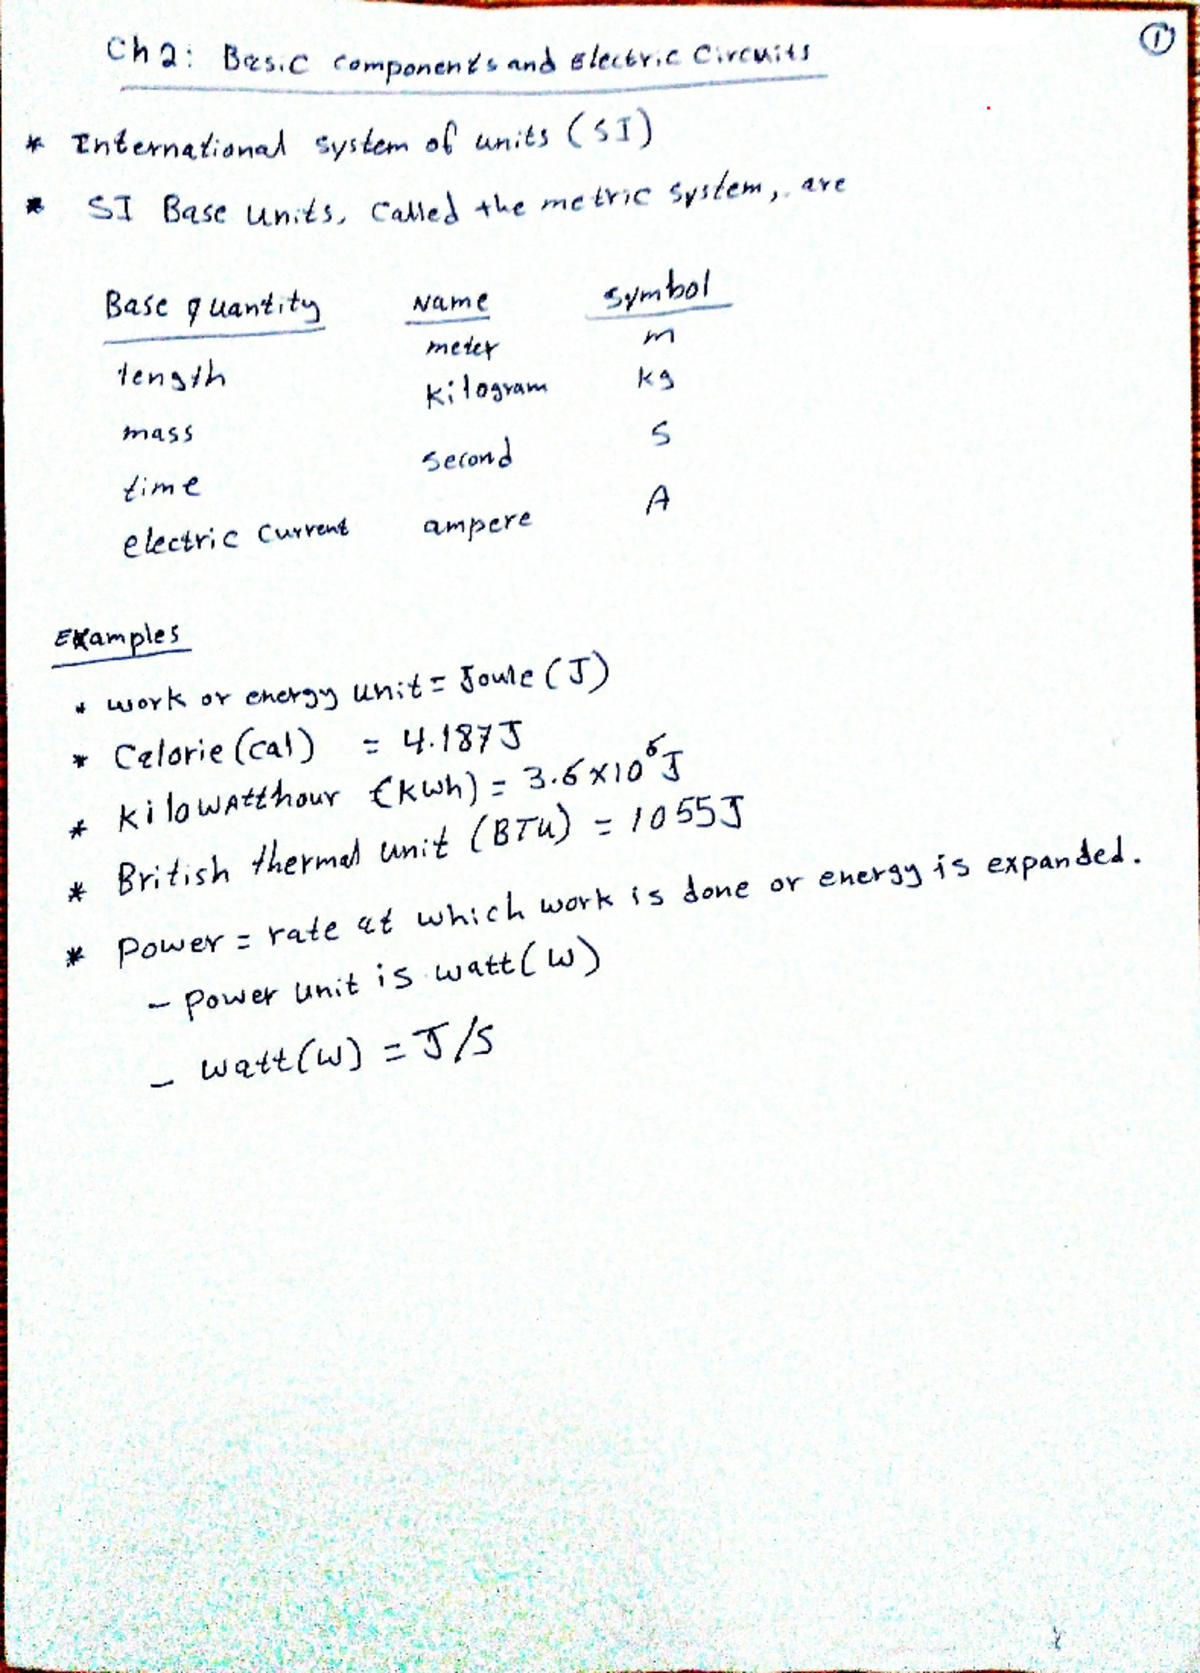 1
Ch 2: Basic components and Electric Circuits
* International system of units (SI)
* SI Base units, Called the metric system, are
Base quantity Name Symbol
length meter m
mass kilogram kg
time second s
electric Current ampere A
Examples
* work or energy unit = Joule (J)
* Calorie (cal) = 4.187 J
* kilowatthour (kwh) = 3.6 × 10⁶ J
* British thermal unit (BTU) = 1055 J
* Power = rate at which work is done or energy is expanded.
- Power unit is watt (W)
- watt (W) = J/S